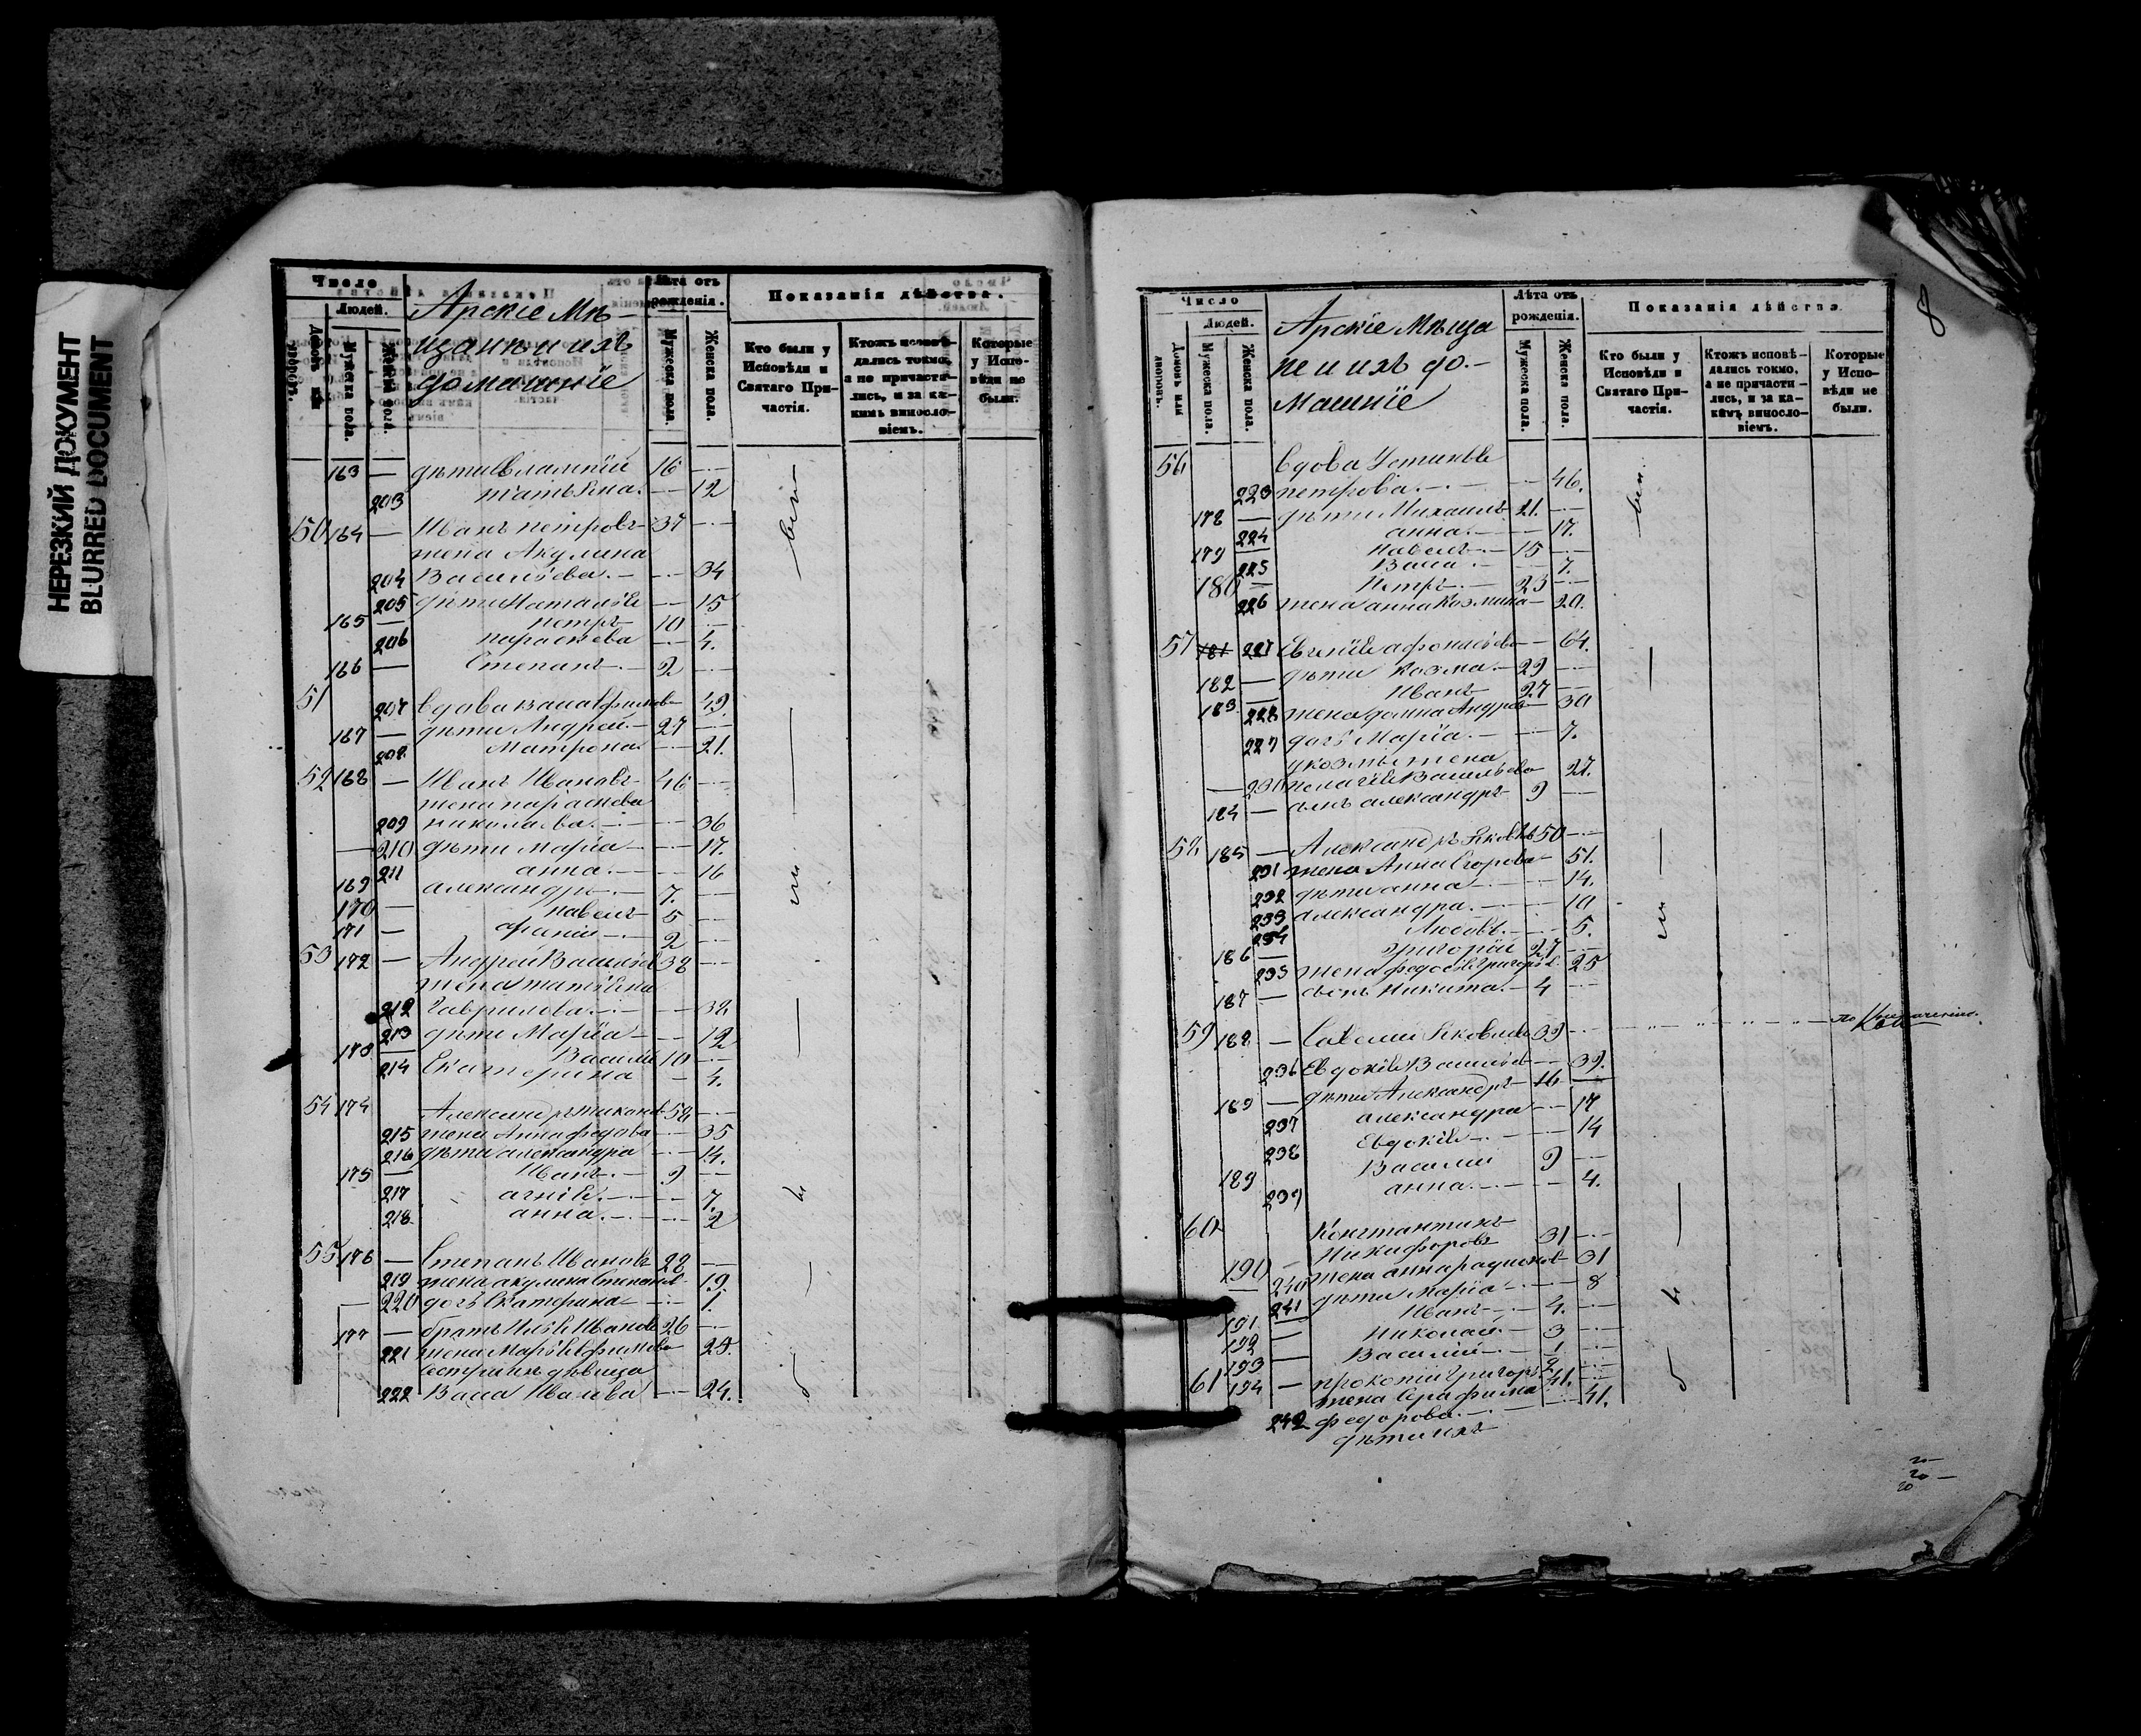 НЕРЕЗКИЙ ДОКУМЕНТ
BLURRED DOCUMENT
Число
Людей.
Домовъ или дворовъ.
Мужеска пола.
Женска пола.
Арскіе Мѣ-
щане и ихъ
домашніе
Лѣта отъ рожденія.
Мужеска пола.
Женска пола.
Показанія дѣйства.
Кто были у Исповѣди и Святаго Причастія.
Ктожъ исповѣдались токмо, а не причастились, и за какимъ винословіемъ.
Которые у Исповѣди не были.
163 — дѣти 16 —
203 татьяна. — 12
50 164 — Иванъ петровъ 37 —
жена Акулина
204 Васильева. — 34
205 дѣти Наталья — 15
165 — петръ 10 —
206 параскева — 4.
166 — Степанъ — 2 —
51 207 вдова васса — 49
167 — дѣти Андрей — 27 —
208 Матрона — 21.
52 168 — Иванъ Ивановъ 46 —
жена параскева
209 николаева. — 36
210 дѣти марія — 17.
211 анна. — 16
169 александръ — 7. —
170 — павелъ 5 —
171 — 2 —
53 172 — Андрей Васильев 38 —
жена татьяна
212 Гаврилова. — 38
213 дѣти Марія — 12
173 — Василій 10 —
214 Екатерина — 4.
54 174 Александръ 58 —
215 жена Анна федова — 35
216 дѣти александра — 14.
175 — Иванъ — 9 —
217 агнія — 7.
218. анна. — 2
55 176 — Степанъ Ивановъ 28 —
219 жена акулина Степанов — 19.
— 220 дочь Екатерина — 1.
177 — братъ Илья Иванов 26 —
221 жена Марья — 25.
сестра ихъ дѣвица
222 Васса Иванова — 24.
8
Число
Людей.
Домовъ или дворовъ.
Мужеска пола.
Женска пола.
Арскіе Мѣща
не и ихъ до-
машніе
Лѣта отъ рожденія.
Мужеска пола.
Женска пола.
Показанія дѣйства.
Кто были у Исповѣди и Святаго Причастія.
Ктожъ исповѣдались токмо, а не причастились, и за какимъ винословіемъ.
Которые у Исповѣди не были.
56 вдова Устинья
223 петрова. — 46.
178 — дѣти Михаилъ 21. —
224 анна. — 17.
179 — павелъ — 15 —
225 Васса. — 7.
180 — Петръ — 23 —
226 жена анна Козмина — 20.
57 181 227 Евгенія афонасьева — 64.
182 — дѣти Козма. — 29 —
183 — Иванъ 27 —
228 жена домна Андрее — 30
229 дочь Марія. — 7.
у козмы жена
— 230 пелагея Васильева 27.
184 — сынъ александръ 9 —
58 185 — Александръ Яковлев 50 —
231 жена Анна Егорова — 51.
232 дѣти анна — 14.
233 александра. — 10
234 Любовь. — 5.
186 — григорій 27 —
235 жена федосья Григорьев. 25
187 — сынъ Никита. — 4 —
59 188 — Савелій Яковлев 39 —
236 Евдокія Васильев — 39.
189 — дѣти Александръ 16 —
237 александра — 17
238 Евдокія — 14
189 Василій 9 —
239 анна. — 4.
60 Константинъ
190 — Никифоровъ 31 —
240 жена анна родионов — 31
241 дѣти Марія — 8
191 — Иванъ — 4. —
192 — Николай. — 3 —
193 — Василій — 1 —
61 194 — прокопій григорь 41. —
жена Серафима
242 федорова. — 41.
дѣти ихъ
20
20
20